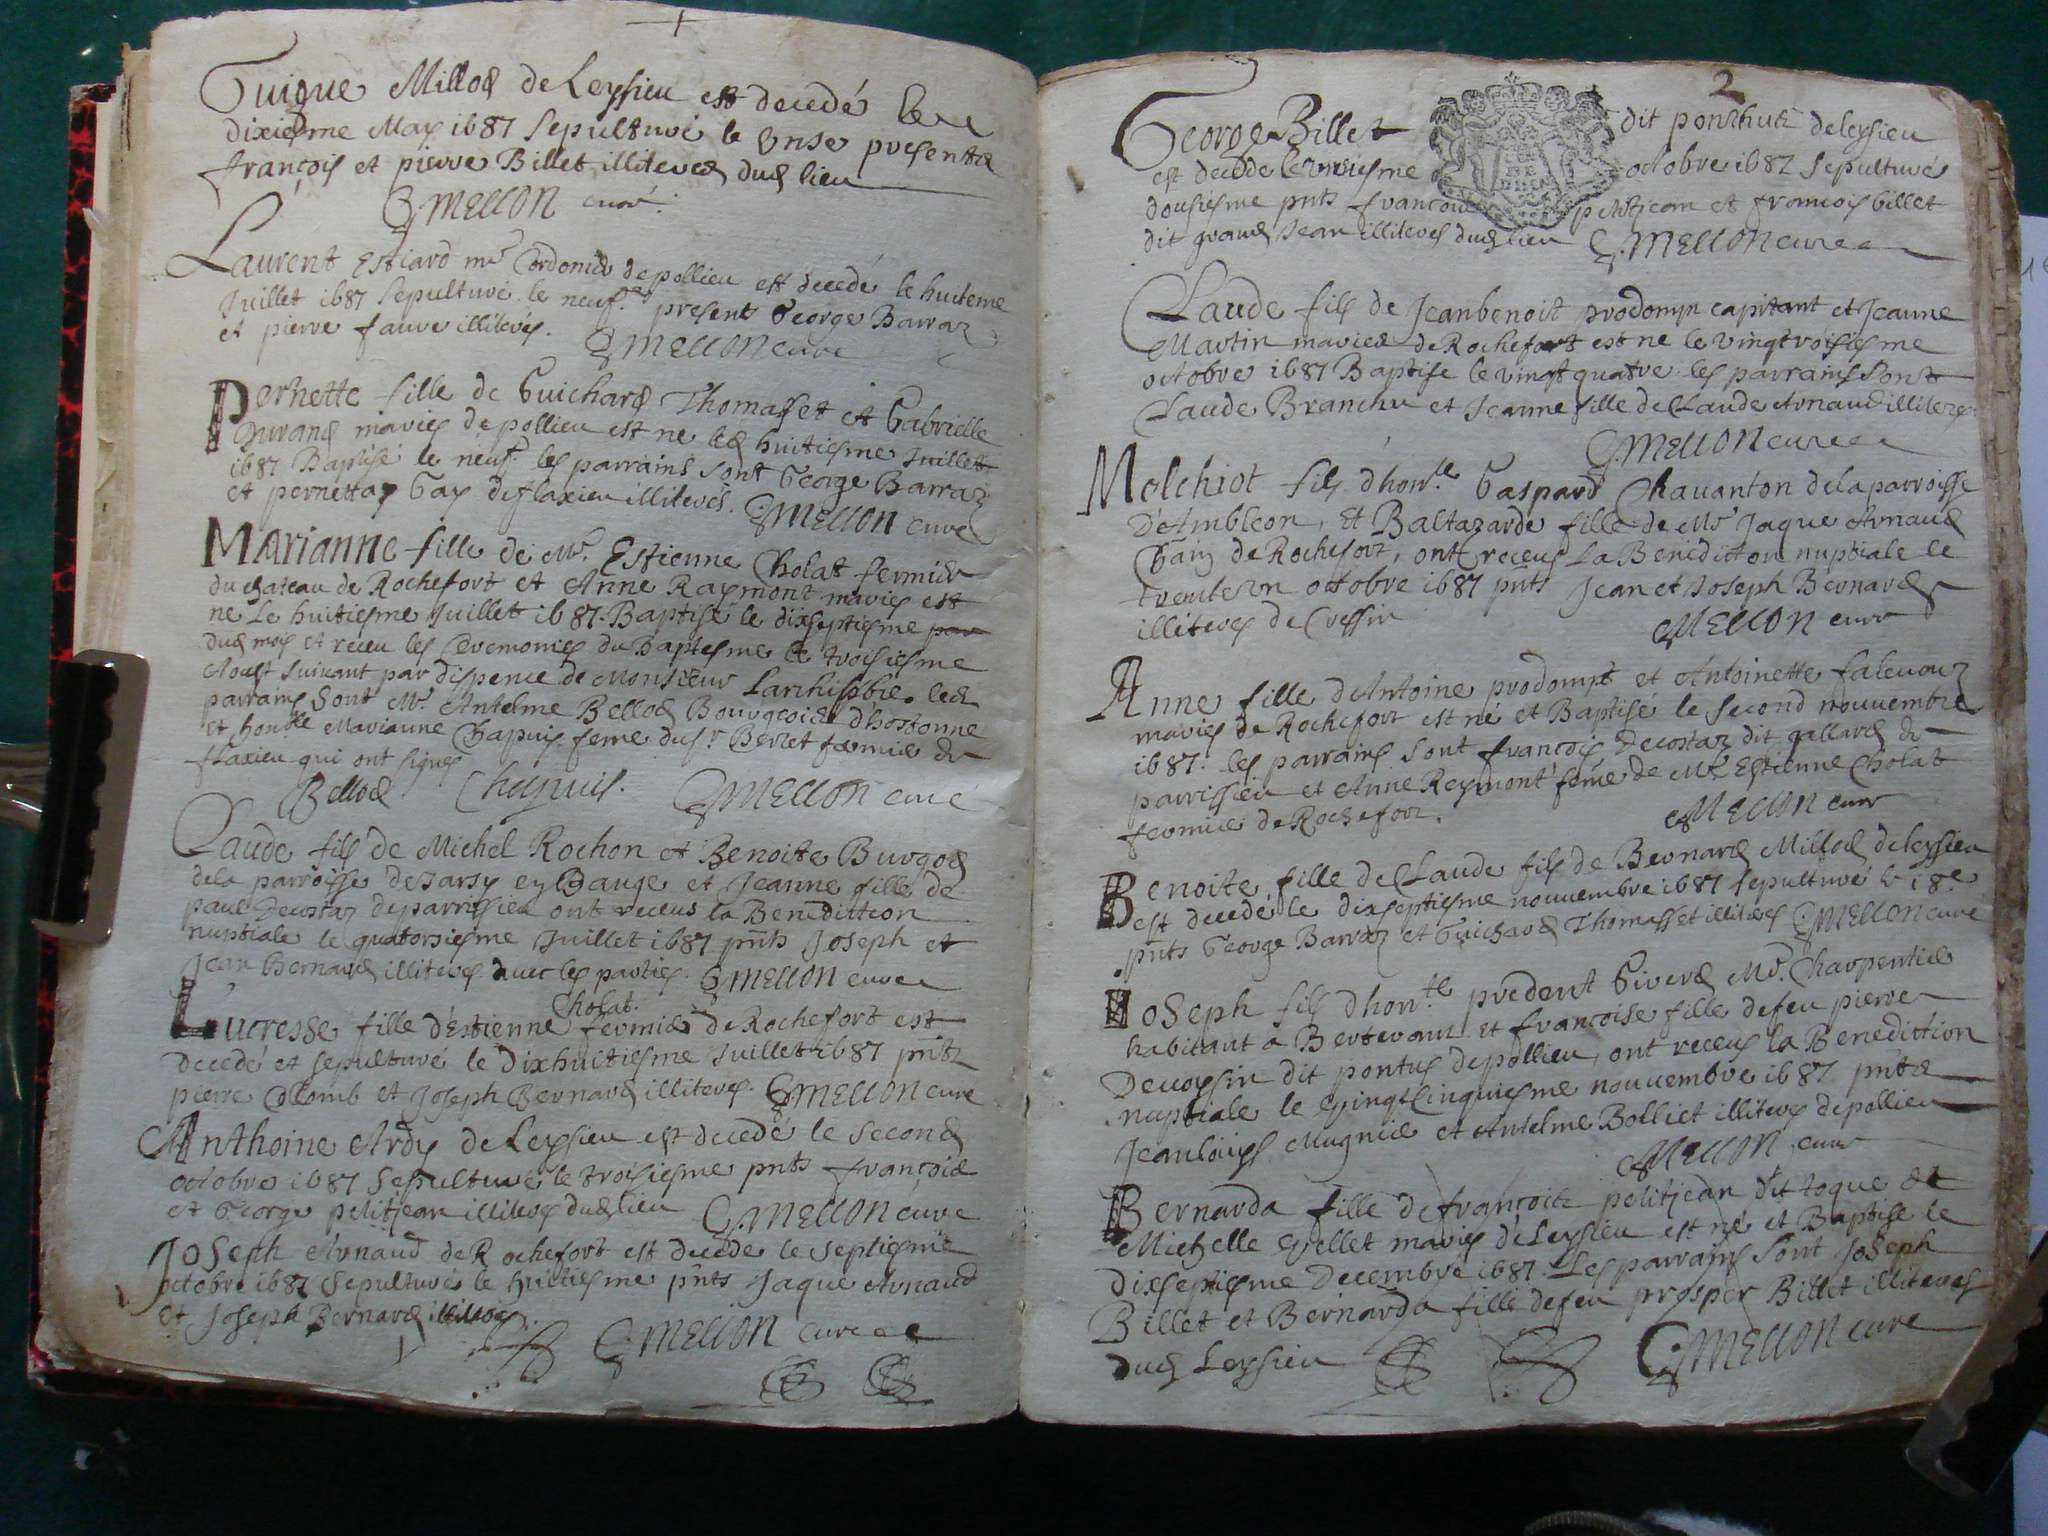 Guigue Millod de Leysieu est decedé le
dixiesme May 1687 sepulturé le unse presents
françois et pierre Billet illiteres dud lieu
C MELLON curé.
Laurent Estiard mre Cordonier de pollieu est decedé le huiteme
Juillet 1687 sepulturé le neufe present George Barraz
et pierre faure illiterés.
C MELLON cure
Pernette fille de Guichard Thomasset et Gabrielle
Durand mariés de pollieu est ne le huitiesme Juillet
1687 Baptisé le neufe les parrains sont George Barraz
et pernetta Gay de flaxieu illiterés. C MELLON curé
MARIANNE fille de Mr. Estienne Cholat fermier
du chateau de Rochefort et Anne Raymont mariés est
ne Le huitiesme Juillet 1687. Baptisé le dixseptiesme
dud mois et receu les Ceremonies du Baptesme le troisiesme
Aoust suivant par dispence de Monsieur Larchipbre. les
parrains sont Mr. Antelme Bellod Bourgeois d'hostonne
et honble Marianne Chapuis feme du sr Berlet fermier de
flaxieu qui ont signés
Bellod Chapuis. C MELLON curé
Claude fils de Michel Rochon et Benoite Burgod
de la parroisse de Jarsy en Bauge et Jeanne fille de
paul Decostaz de parrissieu ont receus la Benediction
nuptiale le quatorsiesme Juillet 1687 pnts Joseph et
Jean Bernard illiteres avec les parties. C MELLON curé
Cholat.
Lucresse fille d'Estienne fermier de Rochefort est
decedé et sepulturé le Dixhuitiesme Juillet 1687 pnts
pierre Colomb et Joseph Bernard illiteres. C MELLON curé
Anthoine Ardy de Leysieu est decedé le second
octobre 1687 sepulturé le troisiesme pnts françois
et George petitjean illiteres dud lieu C MELLON curé
Joseph Arnaud de Rochefort est decede le septiesme
octobre 1687 sepulturé le huitiesme pnts Jaque Arnaud
et Joseph Bernard illiteres.
C MELLON curé
2
George Billet dit de leysieu
est decede le octobre 1687 sepulturé
dousiesme pnts francois petitjean et francois billet
dit grand Jean illiteres dud lieu C MELLON cure
Claude fils de Jeanbenoit prodomp capitant et Jeanne
Martin mariés de Rochefort est ne le vingtroisiesme
octobre 1687 Baptise le vingt quatre les parrains sont
Claude Branchu et Jeanne fille de Claude Arnaud illiteres
C MELLON cure
Melchiot fils d'honle Gaspard Chavanton de la parroisse
D'Ambleon, Et Baltazarde fille de Mr Jaque Arnaud
de Rochefort, ont receus La Benediction nuptiale le
trenteun octobre 1687 pnts Jean et Joseph Bernard
illiteres de Cressin
C MELLON curé
Anne fille d'Antoine prodompt et Antoinette falcouz
mariés de Rochefort est né et Baptisé le second nouuembre
1687. les parrains sont françois Decostaz dit gallard de
parrissieu et Anne Reymont feme de Mr Estienne Cholat
fermier de Rochefort.
C MELLON curé
Benoite fille de Claude fils de Bernard Millod de leysieu
est decedé le dixseptiesme nouuembre 1687 sepulturé le 18e
pnts George Barraz et Guichard Thomasset illiteres C MELLON cure
Joseph fils d'honte predent Giverd Mr. Charpentier
habitant a et francoise fille de feu pierre
Decoysin dit pontus de pollieu, ont receus la Benediction
nuptiale le vingtcinquiesme nouuembre 1687 pnts
Jeanlouys Mugnier et Antelme Bolliet illiteres de pollieu
C MELLON curé
Bernarda fille de francois petitjean dit toque et
Michelle mariés de Leysieu est né et Baptise le
Dixseptiesme Decembre 1687. Les parrains sont Joseph
Billet et Bernarda fille de feu prosper Billet illiteres
dud Leysieu C MELLON cure